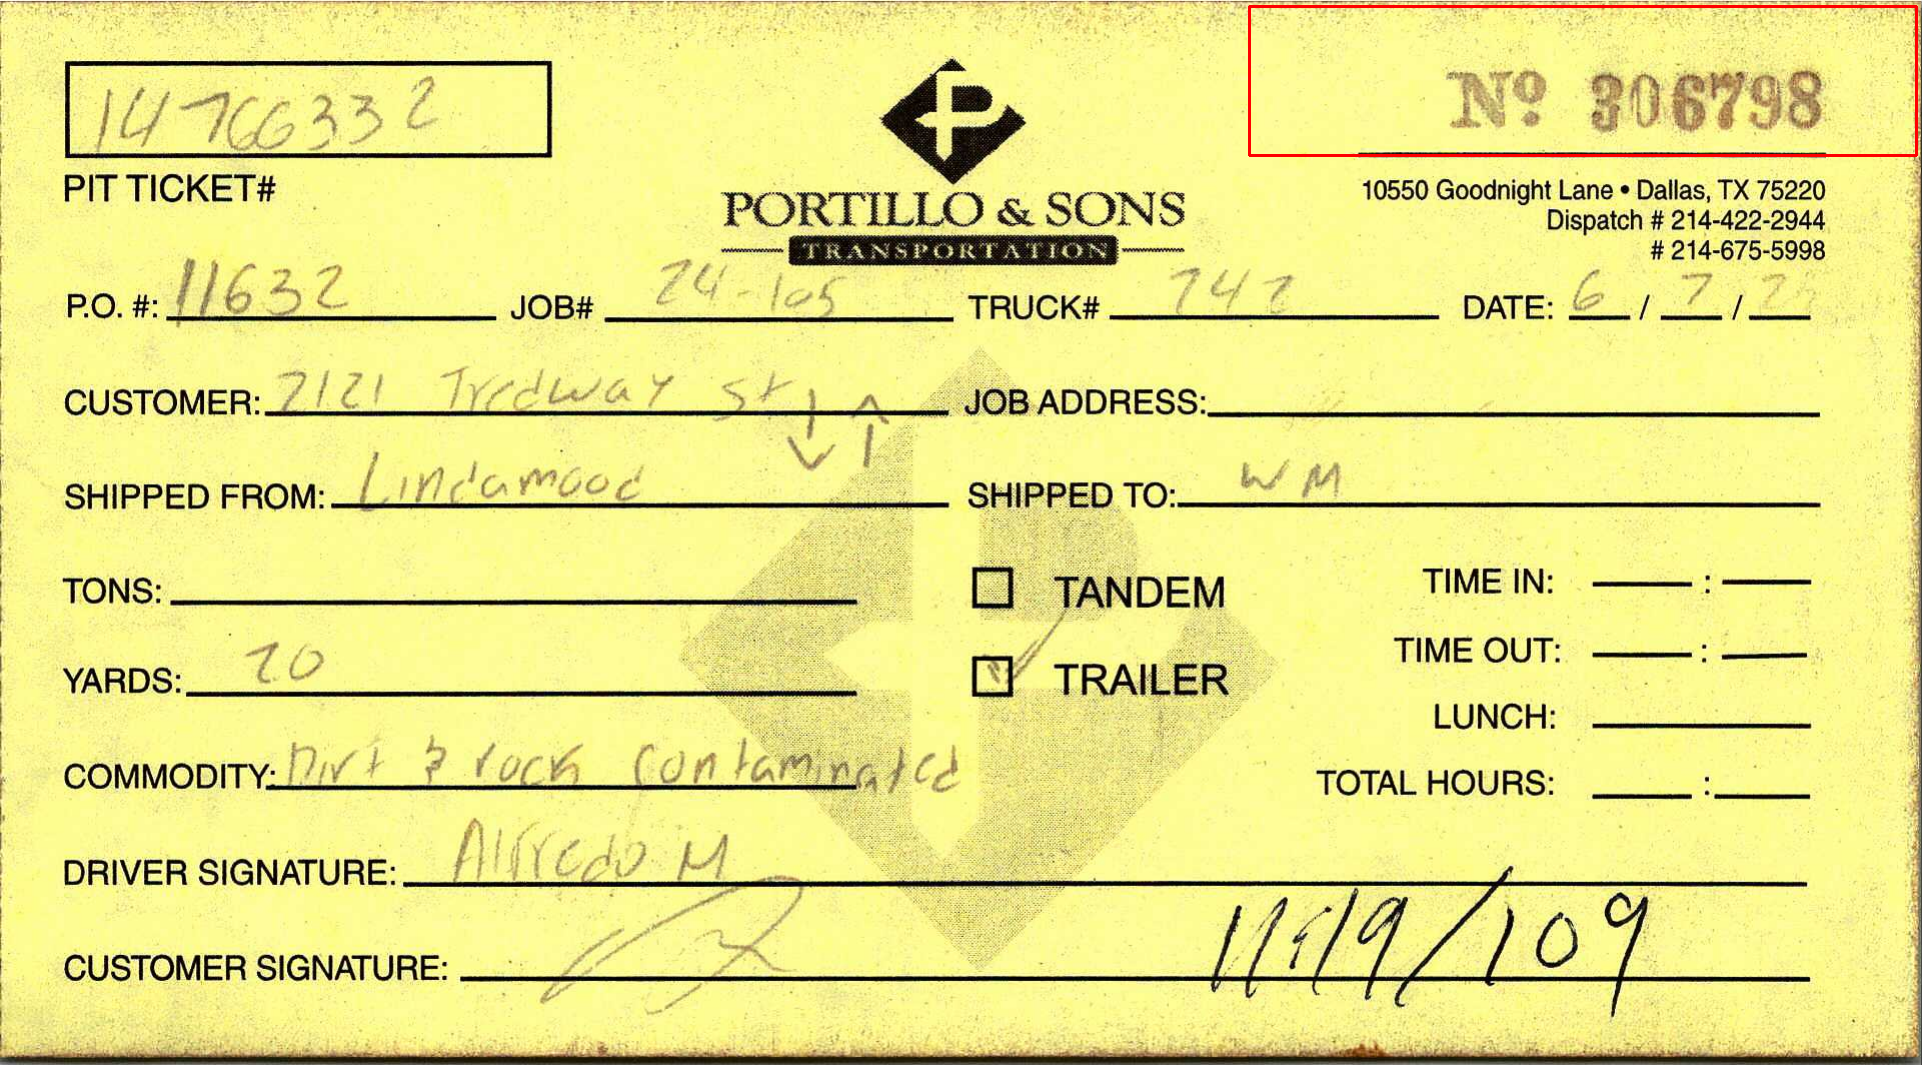 14766332
PIT TICKET#
PORTILLO & SONS
TRANSPORTATION
Nº 306798
10550 Goodnight Lane • Dallas, TX 75220
Dispatch # 214-422-2944
# 214-675-5998
P.O. #: 11632 JOB# 24-105 TRUCK# 242 DATE: 6 / 7 /
CUSTOMER: 2121 Tredway St JOB ADDRESS:
SHIPPED FROM: Lindamood SHIPPED TO: WM
TONS: TANDEM TIME IN: :
YARDS: 20 TRAILER TIME OUT: :
LUNCH:
COMMODITY: Dirt & rock contaminated TOTAL HOURS: :
DRIVER SIGNATURE: Alfredo M
CUSTOMER SIGNATURE: